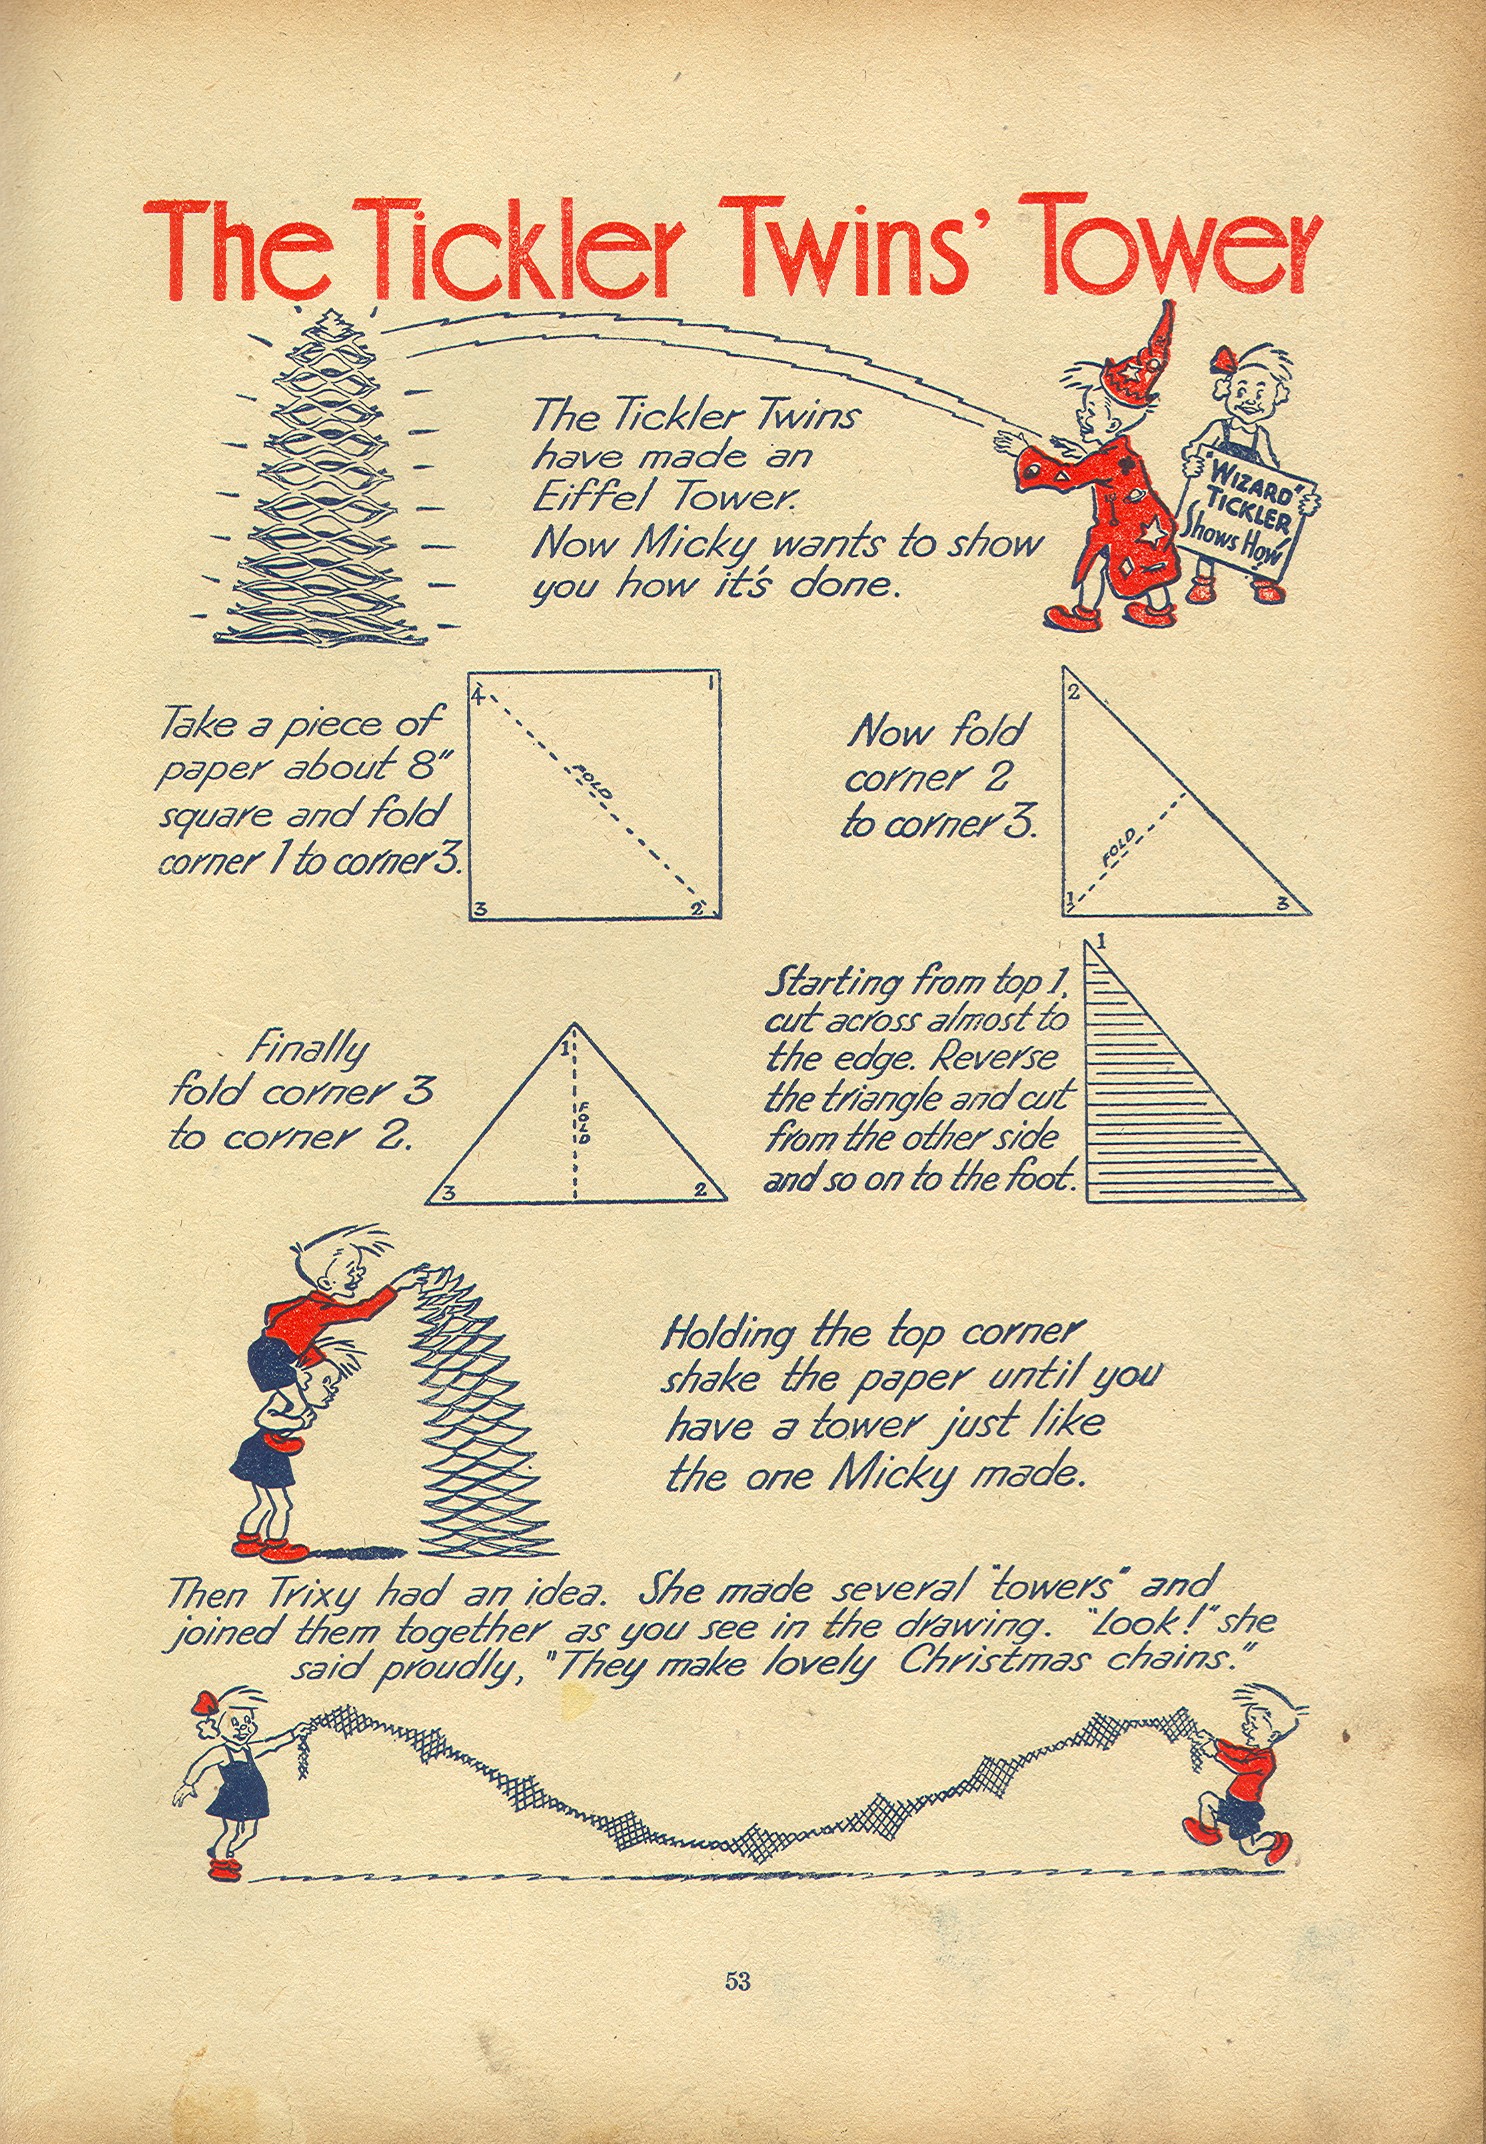 The Tickler Twins' Tower
The Tickler Twins
have made an
Eiffel Tower.
Now Micky wants to show
you how it's done.
"WIZARD"
TICKLER
Shows How
Take a piece of
paper about 8"
square and fold
corner 1 to corner 3.
4
1
FOLD
3
2
Now fold
corner 2
to corner 3.
2
FOLD
1
3
Finally
fold corner 3
to corner 2.
1
FOLD
3
2
Starting from top 1,
cut across almost to
the edge. Reverse
the triangle and cut
from the other side
and so on to the foot.
1
Holding the top corner
shake the paper until you
have a tower just like
the one Micky made.
Then Trixy had an idea. She made several "towers" and
joined them together as you see in the drawing. "Look!" she
said proudly, "They make lovely Christmas chains."
53